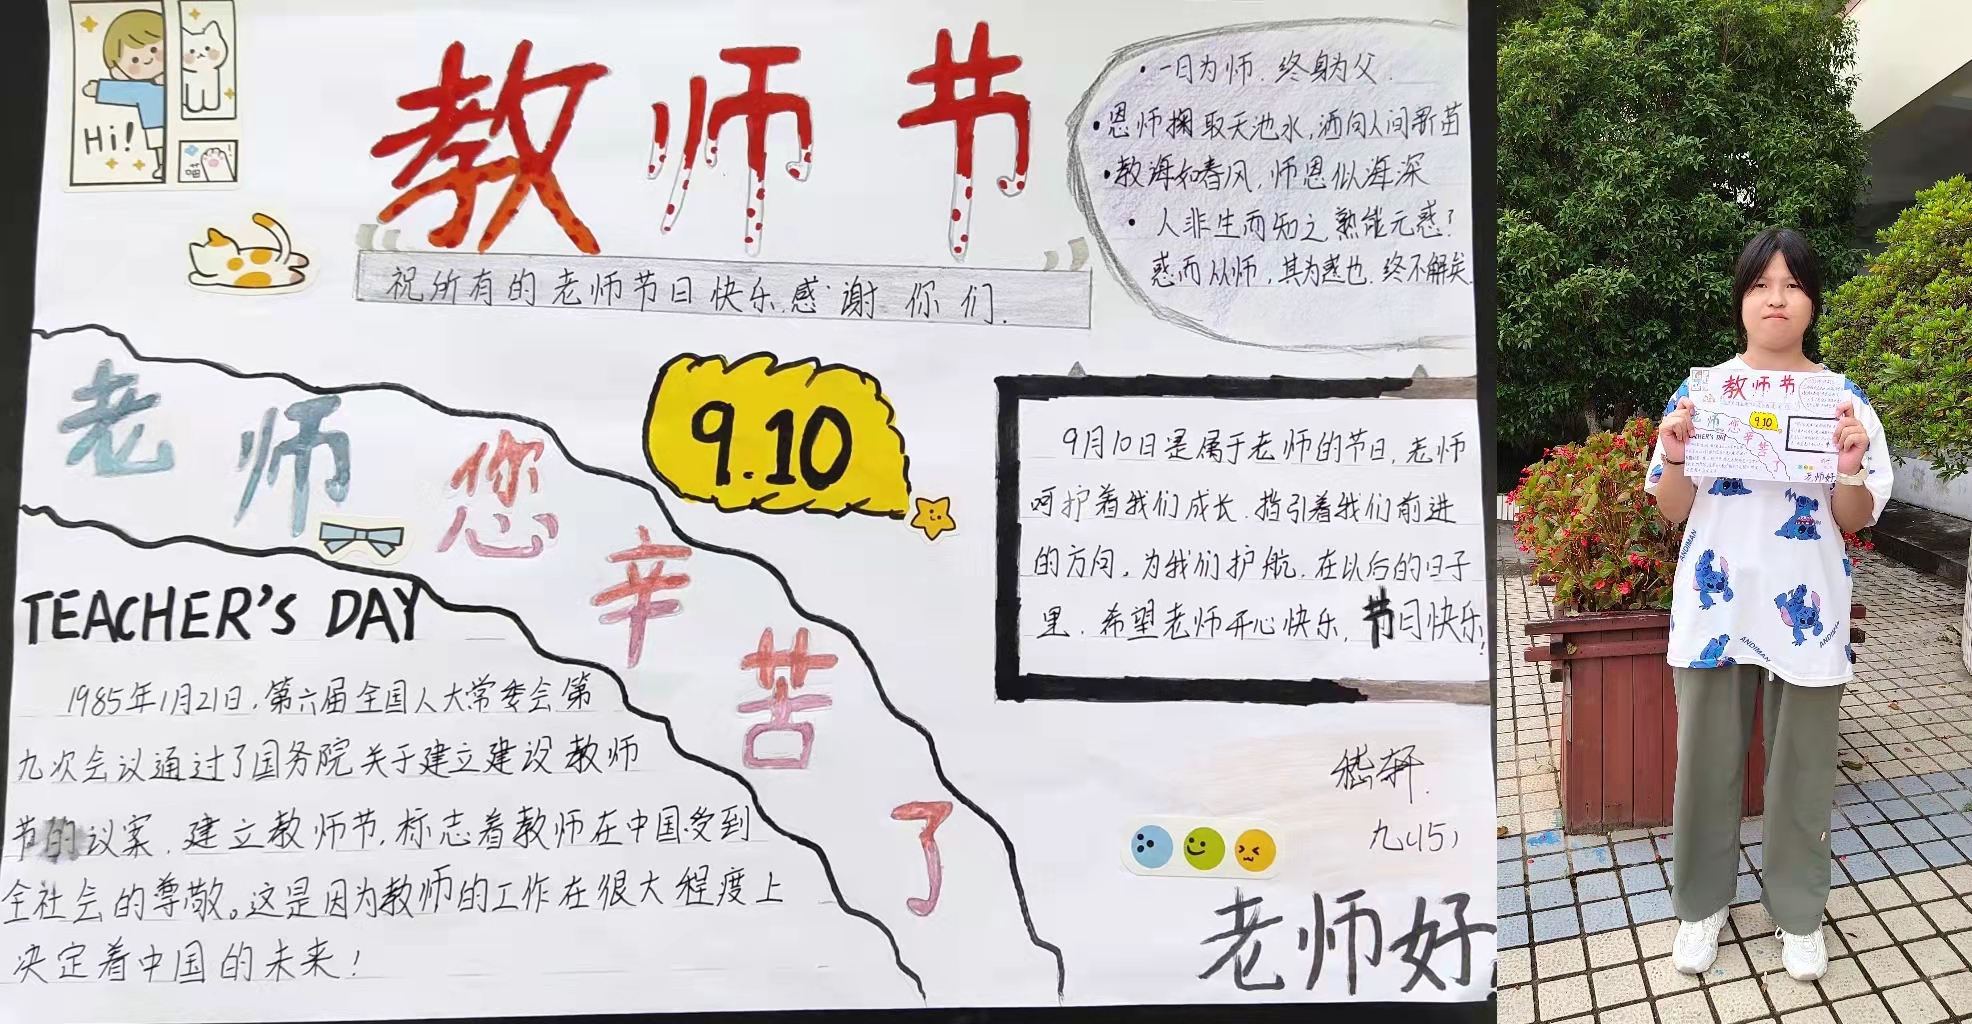 Hi!
喵
教师节
祝所有的老师节日快乐.感谢你们.
•一日为师.终身为父.
•恩师掬取天池水,洒向人间新苗
•教海如春风,师恩似海深
•人非生而知之,熟能无惑?
惑而从师,其为惑也.终不解矣.
老师您辛苦了
9.10
TEACHER'S DAY
1985年1月21日,第六届全国人大常委会第
九次会议通过了国务院关于建立建设教师
节的议案.建立教师节,标志着教师在中国受到
全社会的尊敬。这是因为教师的工作在很大程度上
决定着中国的未来!
9月10日是属于老师的节日,老师
呵护着我们成长.指引着我们前进
的方向,为我们护航.在以后的日子
里.希望老师开心快乐,节日快乐!
嵇轩.
九(15)
老师好
教师节
9.10
老师您辛苦了
老师好
ANDIMAN
ANDIMAN
ANDIMAN